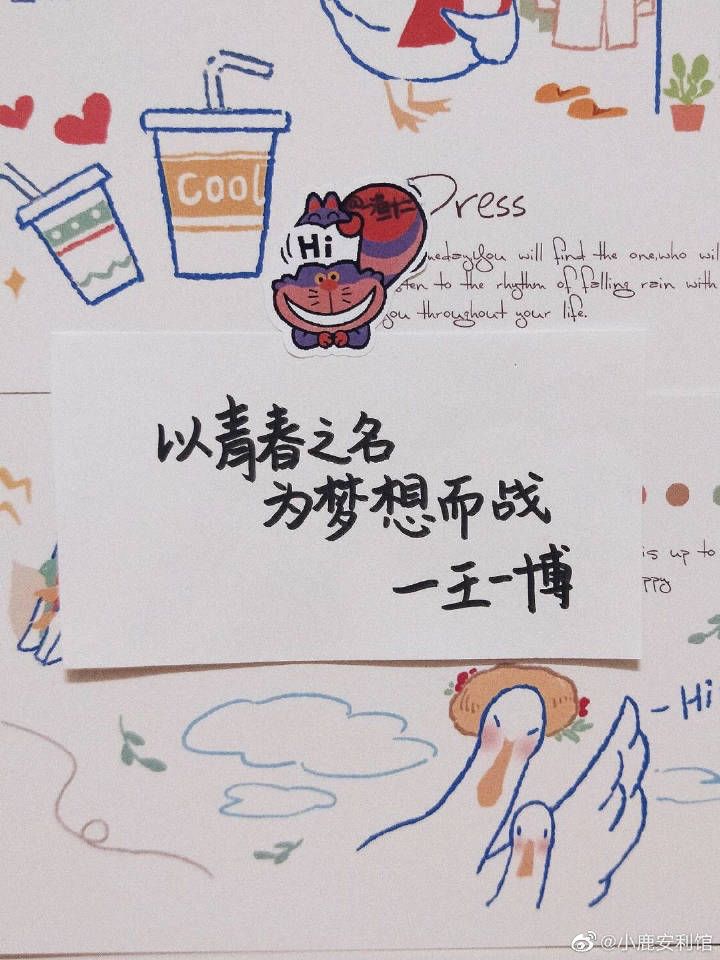 COOL
Hi
Dress
you will find the one, who wil
to the rhythm of falling rain with
you throughout your life.
以青春之名
为梦想而战
一王一博
is up to
ppy
- Hi
@小鹿安利馆